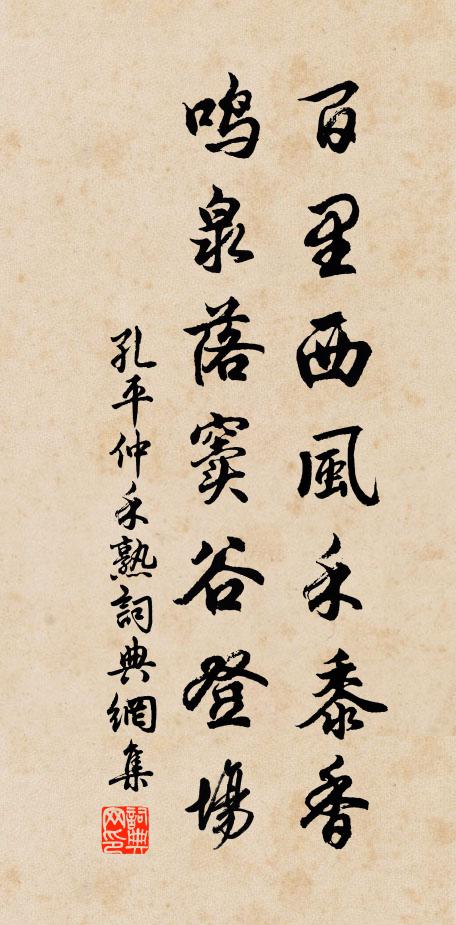 百里西風禾黍香
鳴泉落竇谷登場
孔平仲禾熟詞典網集
詞典
网印